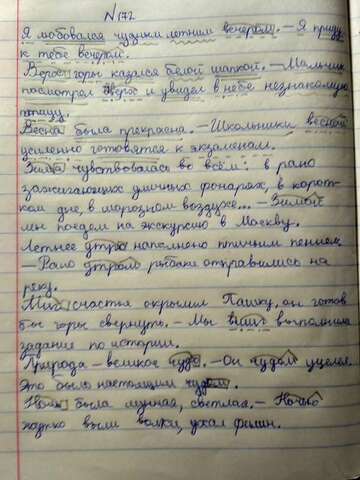 N 172
Я любовался чудным летним вечером. – Я приду
к тебе вечером.
Верх горы казался белой шапкой. – Мальчик
посмотрел вверх и увидел в небе незнакомую
птицу.
Весна была прекрасна. – Школьники весной
усиленно готовятся к экзаменам.
Зима чувствовалась во всём: в рано
зажигающихся уличных фонарях, в корот-
ком дне, в морозном воздухе... – Зимой
мы поедем на экскурсию в Москву.
Летнее утро наполнено птичьим пением.
– Рано утром рыбаки отправились на
реку.
Миг счастья окрылил Пашку, он готов
был горы свернуть. – Мы вмиг выполнили
задание по истории.
Природа – великое чудо. – Он чудом уцелел.
Это было настоящим чудом.
Ночь была лунная, светлая. – Ночью
жутко выли волки, ухал филин.